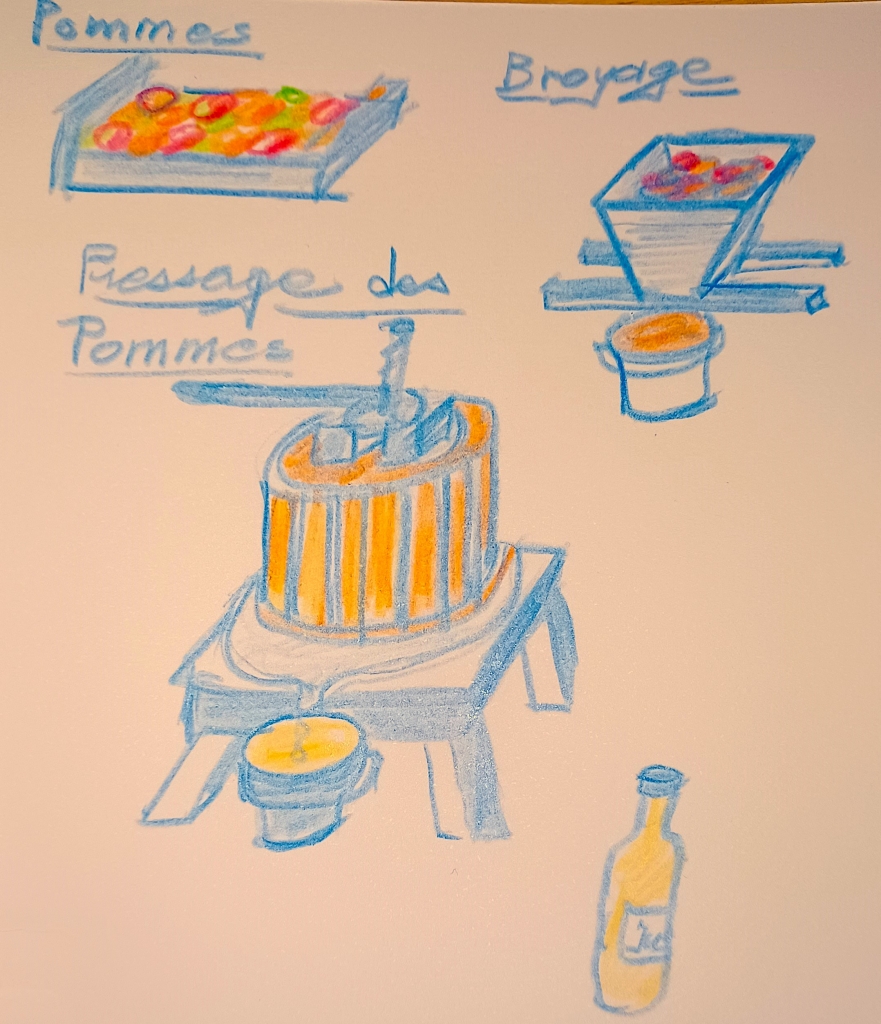 Pommes
Broyage
Pressage des
Pommes